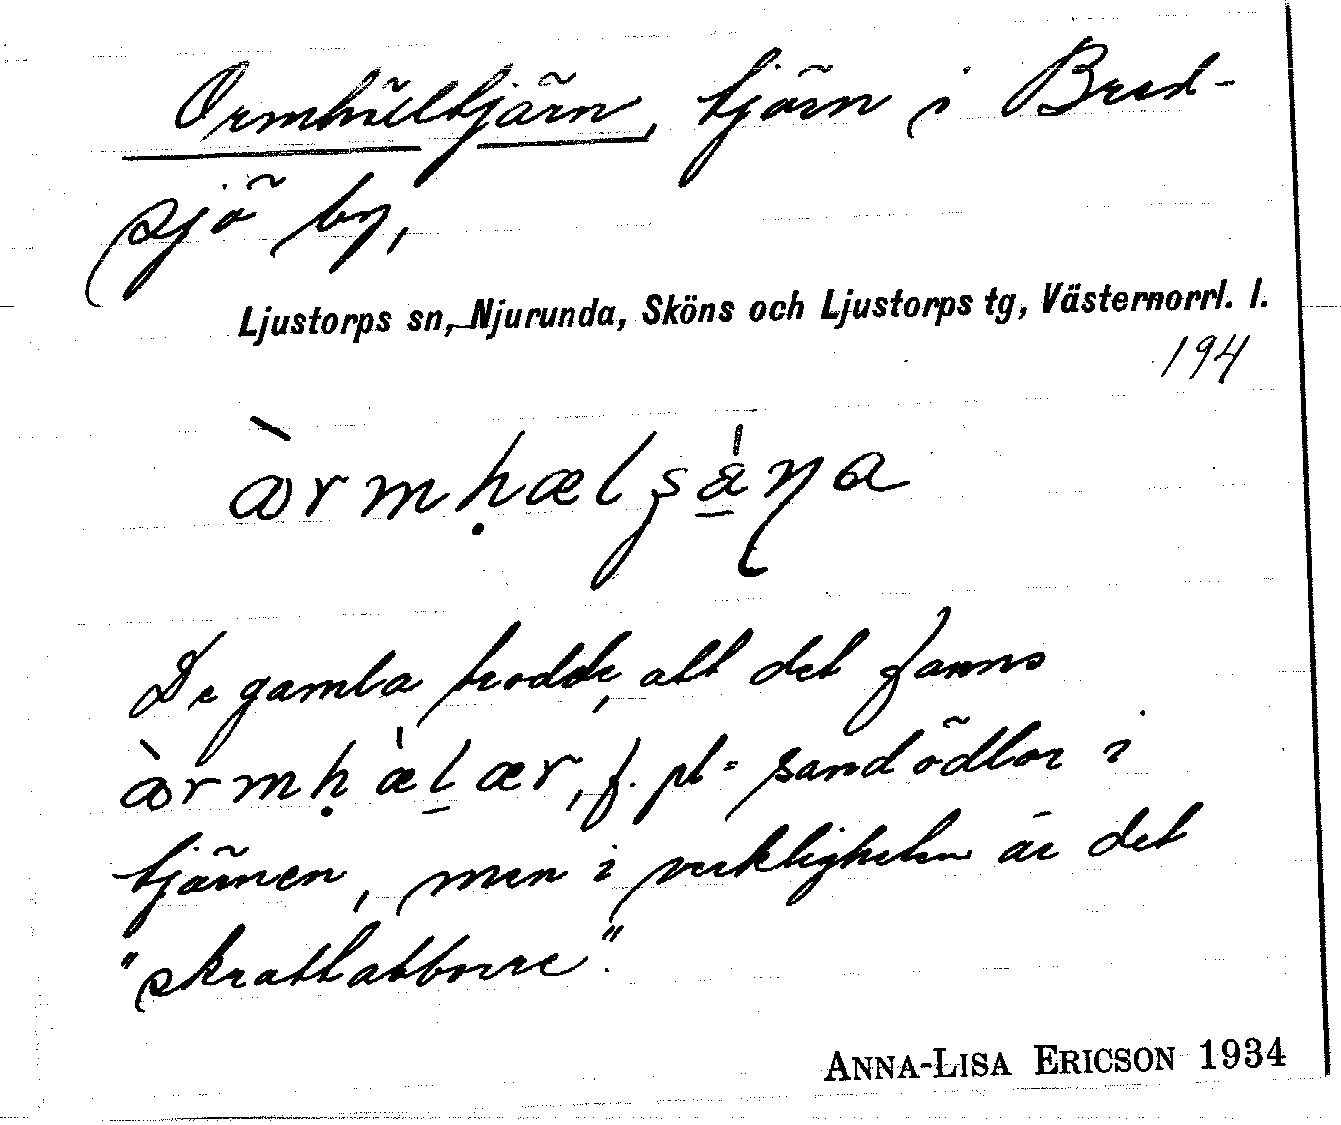 Ormhültjärn, tjärn i Bred-
sjö by,
Ljustorps sn, Njurunda, Sköns och Ljustorps tg, Västernorrl. l.
194
De gamla trodde, att det fanns
f. pl = sandödlor i
tjärnen, men i verkligheten är det
"skrattabborre".
ANNA-LISA ERICSON 1934